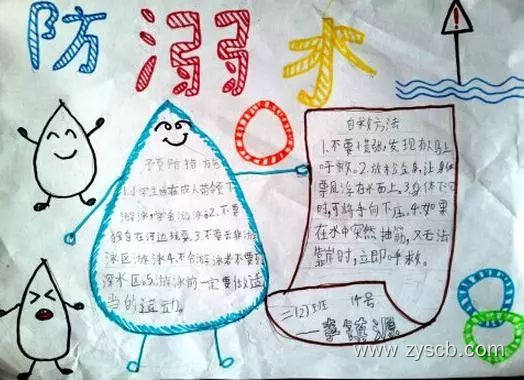 防溺水
!
预防措施
1.小学生应在成人带领下
游泳,学会游泳。2.不要
独自在河边玩耍。3.不要去非游
泳区游泳。4.不会游泳者不要到
深水区。5.游泳前一定要做适
当的运动。
自救方法
1.不要慌张,发现有人马上
呼救。2.放松全身,让身体
漂浮在水面上。3.身体下沉
时,可将手向下压。4.如果
在水中突然抽筋,又无法
靠岸时,立即呼救。
二(2)班 号
www.zyscb.com